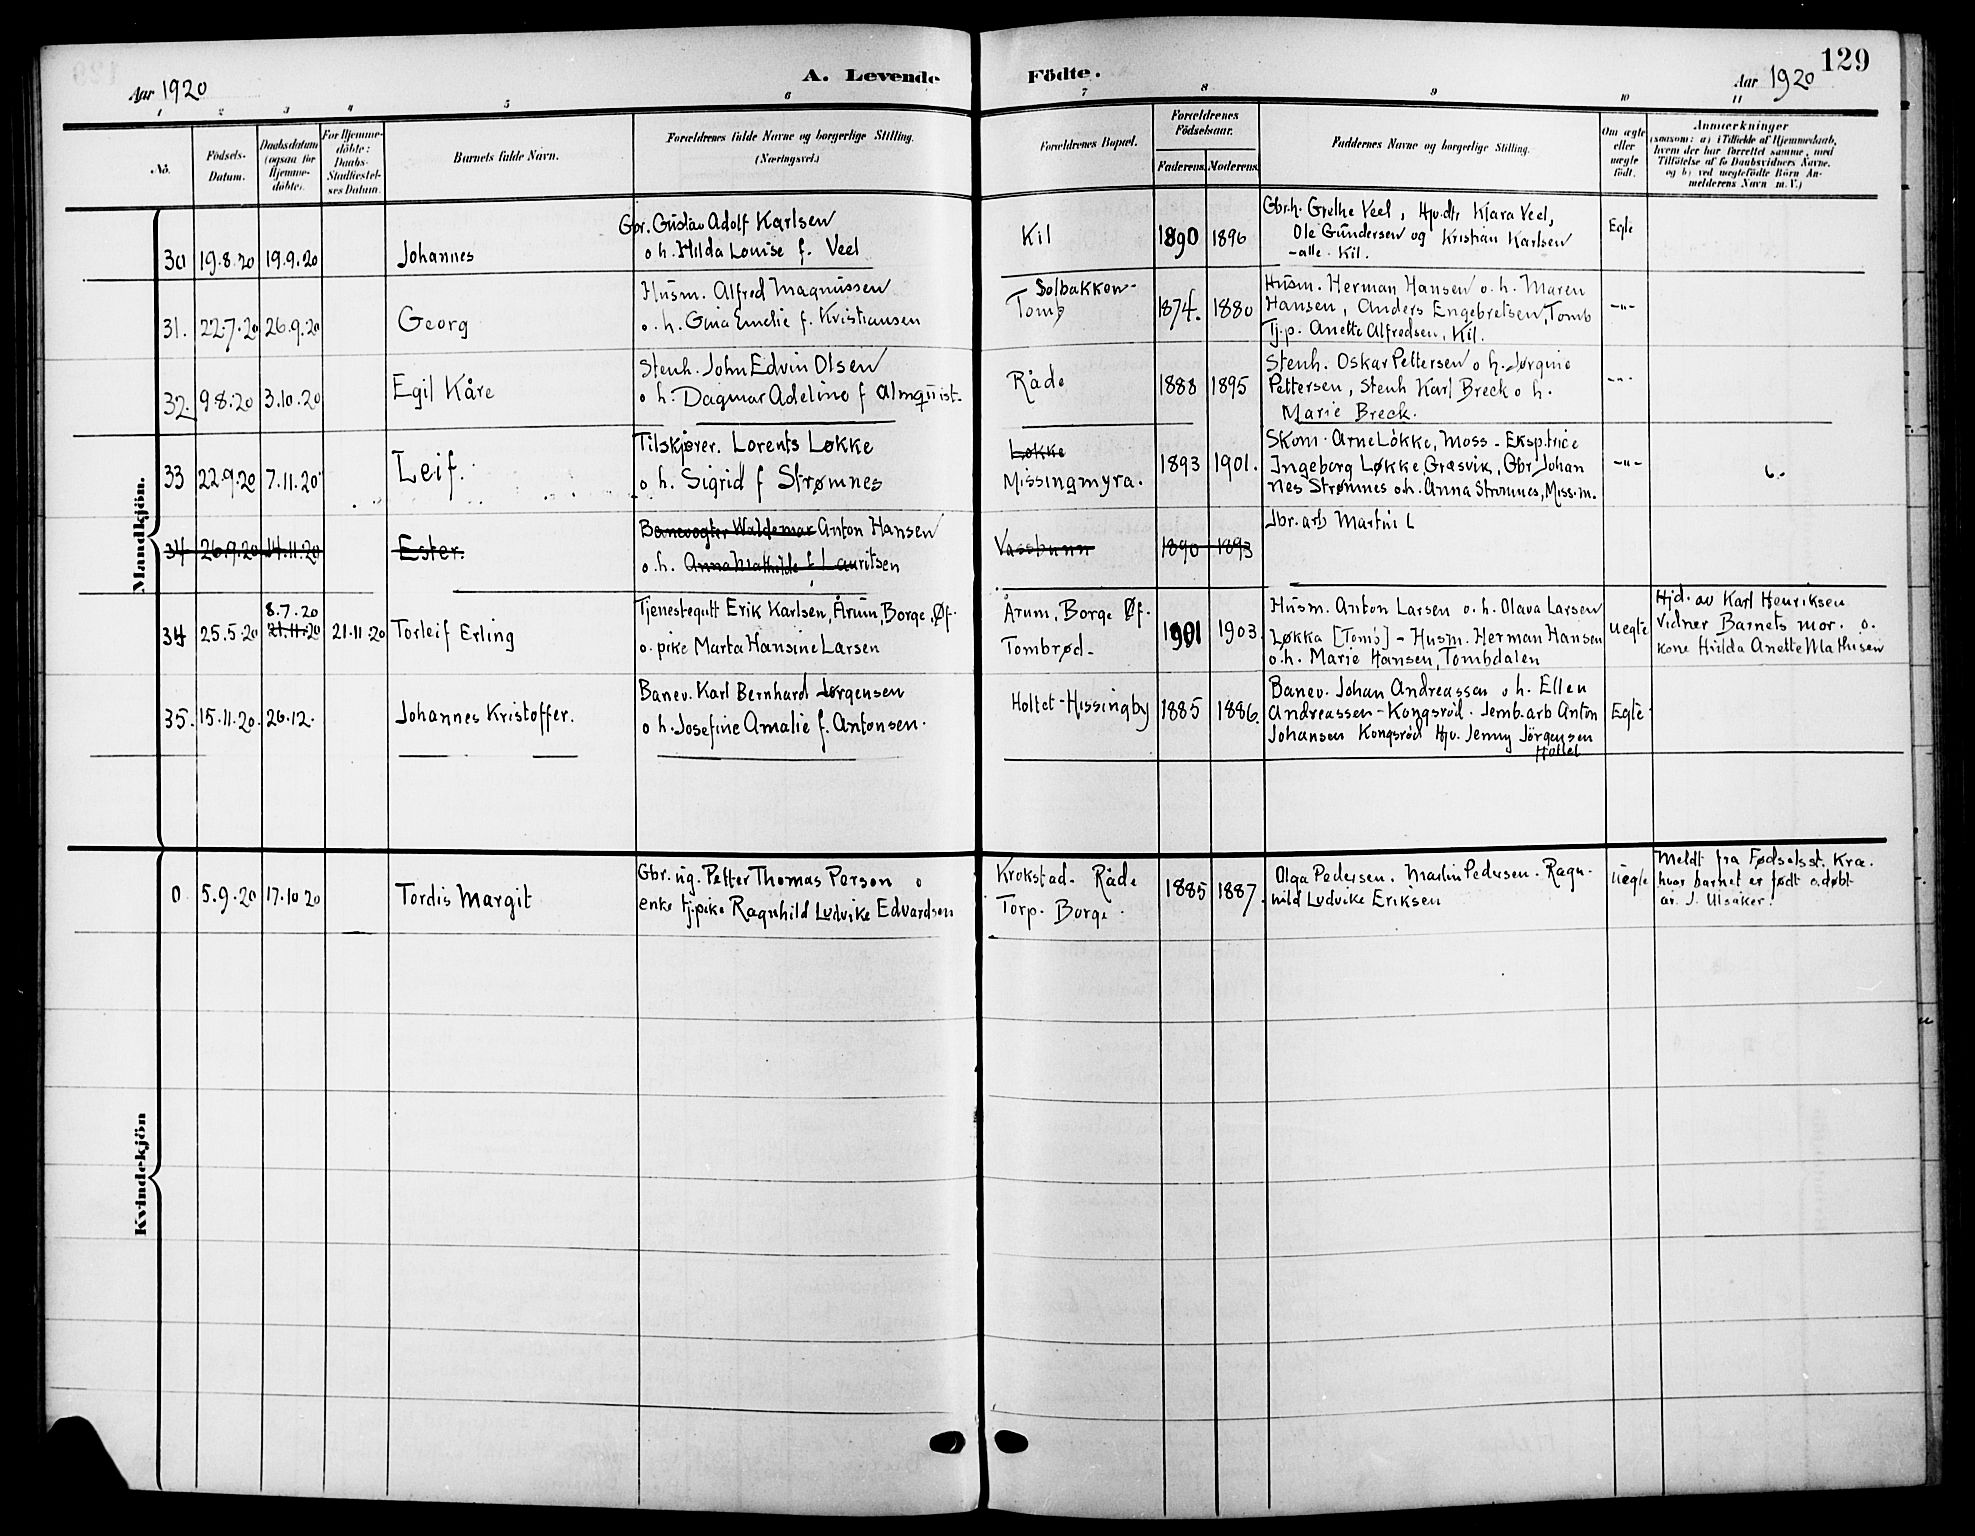 129
Aar 1920
A. Levende Födte.
Aar 1920
1 2 3 4 5 6 7 8 9 10 11
No.
Födsels-
Datum.
Daabsdatum
(ogsaa for
Hjemme-
döbte).
For Hjemme-
döbte:
Daabs-
Stadfæstel-
ses Datum.
Barnets fulde Navn.
Forældrenes fulde Navne og borgerlige Stilling.
(Næringsvei.)
Forældrenes Bopæl.
Forældrenes
Födselsaar.
Faderens. Moderens.
Faddernes Navne og borgerlige Stilling.
Om ægte
eller
uægte
født.
Anmærkninger
(saasom: a) i Tilfælde af Hjemmedaab,
hvem der har forrettet samme, med
Tilföielse af to Daabsvidners Navne,
og b) ved uægtefödte Börn An-
melderens Navn m. V.)
Mandkjön.
30 19.8.20 19.9.20 Johannes
Gbr. Gustav Adolf Karlsen
o h. Hilda Louise f. Veel
Kil 1890 1896
Gbr.h. Grethe Veel, Hjv.dtr Klara Veel,
Ole Gundersen og Kristian Karlsen
- alle. Kil.
Egte
31. 22.7.20 26.9.20 Georg
Husm. Alfred Magnussen
o. h. Gina Emelie f. Kristiansen
Solbakken-
Tomb 1874. 1880
Husm. Herman Hansen o. h. Maren
Hansen, Anders Engebretsen, Tomb
Tj.p. Anette Alfredsen, Kil.
-"-
32. 9 8.20 3.10.20 Egil Kåre
Stenh. John Edvin Olsen
o h. Dagmar Adeline f Almquist.
Råde 1888 1895
Stenh. Oskar Pettersen o h. Jørgine
Pettersen, Stenh Karl Breck o h.
Marie Breck.
-"-
33 22.9.20 7.11.20 Leif.
Tilskjærer. Lorents Løkke
o h. Sigrid f Strømnes
Løkke
Missingmyra. 1893 1901.
Skom. Arne Løkke, Moss - Eksp.trice
Ingeborg Løkke, Græsvik, Gbr Johan
nes Strømnes o.h. Anna Strømnes, Miss.m.
-"-
34 26.9.20 14.11.20 Ester.
Banevogter Waldemar Anton Hansen
o. h. Anna Mathilde f Lauritsen
Vassbunn 1890 1893
Jbr. arb Martin L
34 25.5.20 8.7.20
21.11.20 21.11.20 Torleif Erling
Tjenestegutt Erik Karlsen, Årum, Borge, Øf.
o. pike Marta Hansine Larsen
Årum, Borge Øf.
Tombrød - 1901 1903.
Husm. Anton Larsen o. h. Olava Larsen
Løkka [Tomb] - Husm. Herman Hansen
o. h. Marie Hansen, Tombdalen
uegte
Hjd. av Karl Henriksen
Vidner Barnets mor. o.
kone Hilda Anette Mathisen
35. 15.11.20. 26.12. Johannes Kristoffer.
Banev. Karl Bernhard Jørgensen
o h. Josefine Amalie f. Antonsen.
Holtet - Missingby 1885 1886.
Banev. Johan Andreassen o h. Ellen
Andreassen - Kongsrød. Jernb. arb Anton
Johansen Kongsrød Hjv. Jenny Jörgensen
Holtet
Egte
Kvindekjön
0 5.9.20 17.10 20 Tordis Margit
Gbr. ug. Petter Thomas Person o
enke tj.pike Ragnhild Ludvike Edvardsen
Krokstad - Råde
Torp. Borge. 1885 1887.
Olga Pedersen. Martin Pedersen. Ragn-
hild Ludvike Eriksen
Uegte
Meldt fra Fødselsst. Kra.
hvor barnet er født o. døbt
av. J. Ulsaker.